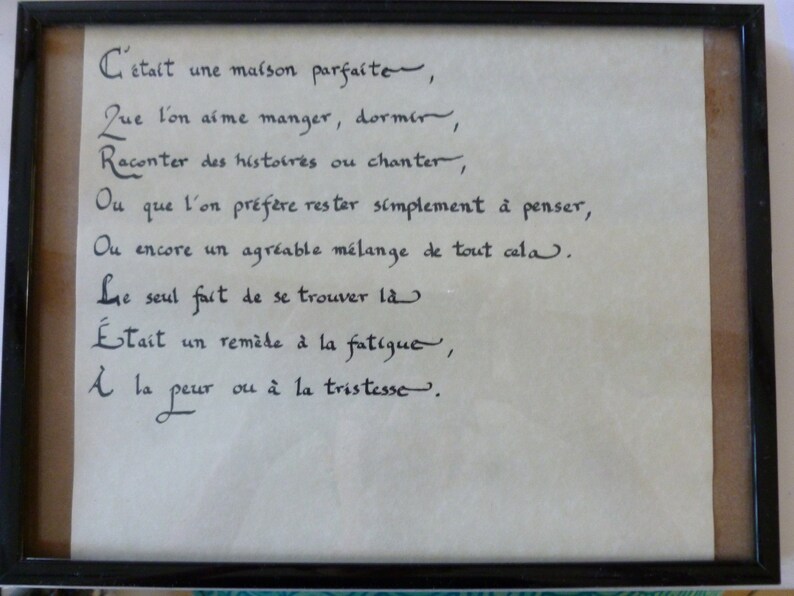 C'était une maison parfaite,
Que l'on aime manger, dormir,
Raconter des histoires ou chanter,
Ou que l'on préfère rester simplement à penser,
Ou encore un agréable mélange de tout cela.
Le seul fait de se trouver là
Était un remède à la fatigue,
À la peur ou à la tristesse.